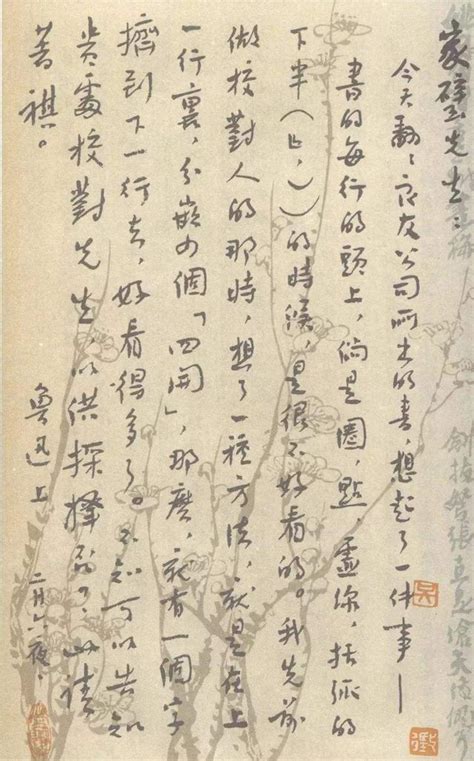 家璧先生：
今天翻〻良友公司所出的書，想起了一件事——
書的每行的頭上，倘是圈，點，虛線，括弧的
下半（﹂，））的時候，是很不好看的。我先前
做校對人的那時，想了一種方法，就是在上
一行裏，分嵌四個「四開」，那麼，就有一個字
擠到下一行去，好看得多了。不知可以告知
貴處校對先生，以供採擇否？此請
著祺。
魯迅上 二月六夜。